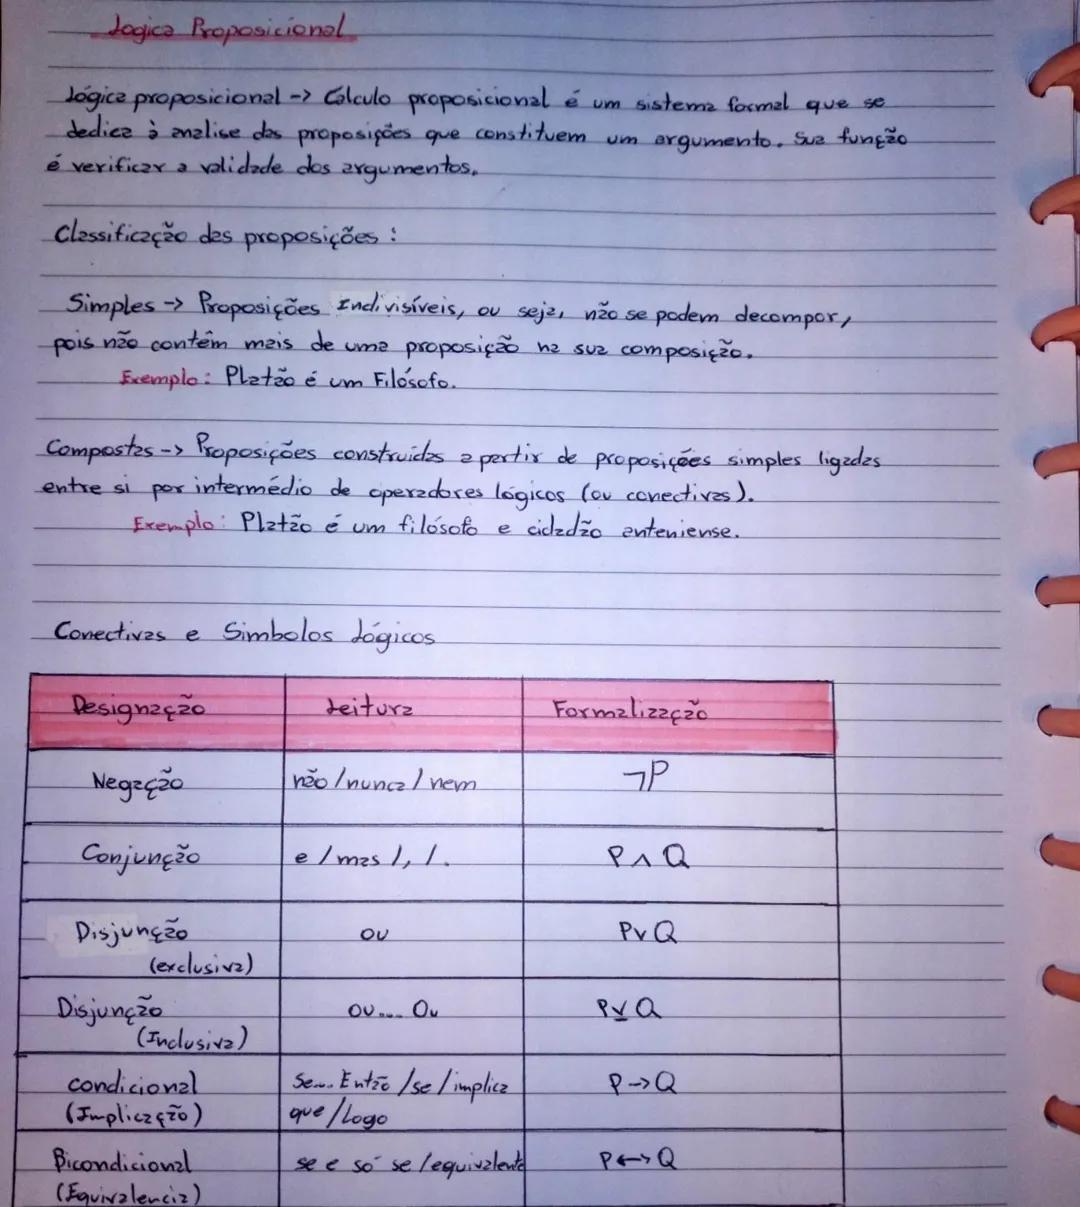 Logica Proposicional
Lógica proposicional -> Cálculo proposicional é um sistema formal que se
dedica à analise das proposições que constituem um argumento. Sua função
é verificar a validade dos argumentos.
Classificação das proposições :
Simples -> Proposições Indivisíveis, ou seja, não se podem decompor,
pois não contêm mais de uma proposição na sua composição.
Exemplo: Platão é um Filósofo.
Compostas -> Proposições construídas a partir de proposições simples ligadas
entre si por intermédio de operadores lógicos (ou conectivas).
Exemplo: Platão é um filósofo e cidadão anteniense.
Conectivas e Simbolos Lógicos
Designação Leitura Formalização
Negação não /nunca / nem ¬P
Conjunção e / mas /, /. P ∧ Q
Disjunção ou P∨Q
(exclusiva)
Disjunção ou.... Ou P⊻Q
(Inclusiva)
condicional Se.... Então /se /implica P->Q
(Implicação) que /Logo
Bicondicional se e só se /equivalente P<->Q
(Equivalencia)